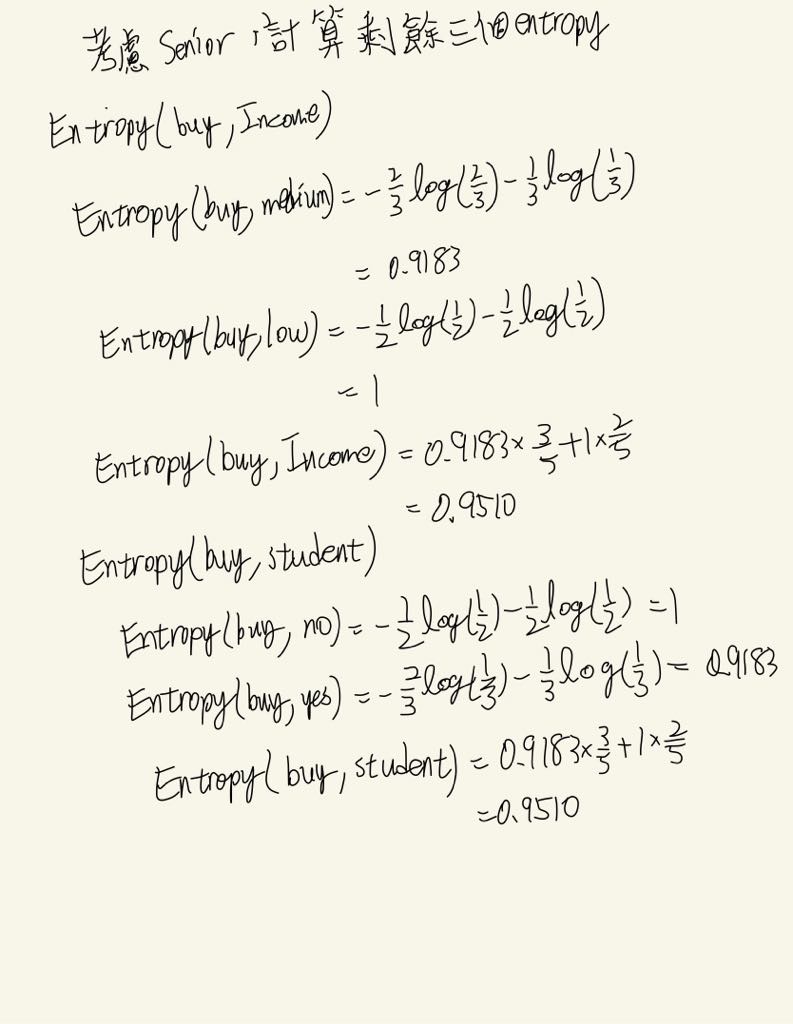 考慮 Senior，計算剩餘三個entropy
Entropy(buy, Income)
Entropy(buy, medium) = -2/3 log(2/3) - 1/3 log(1/3)
= 0.9183
Entropy(buy, low) = -1/2 log(1/2) - 1/2 log(1/2)
= 1
Entropy(buy, Income) = 0.9183 × 3/5 + 1 × 2/5
= 0.9510
Entropy(buy, student)
Entropy(buy, no) = -1/2 log(1/2) - 1/2 log(1/2) = 1
Entropy(buy, yes) = -2/3 log(1/3) - 1/3 log(1/3) = 0.9183
Entropy(buy, student) = 0.9183 × 3/5 + 1 × 2/5
= 0.9510